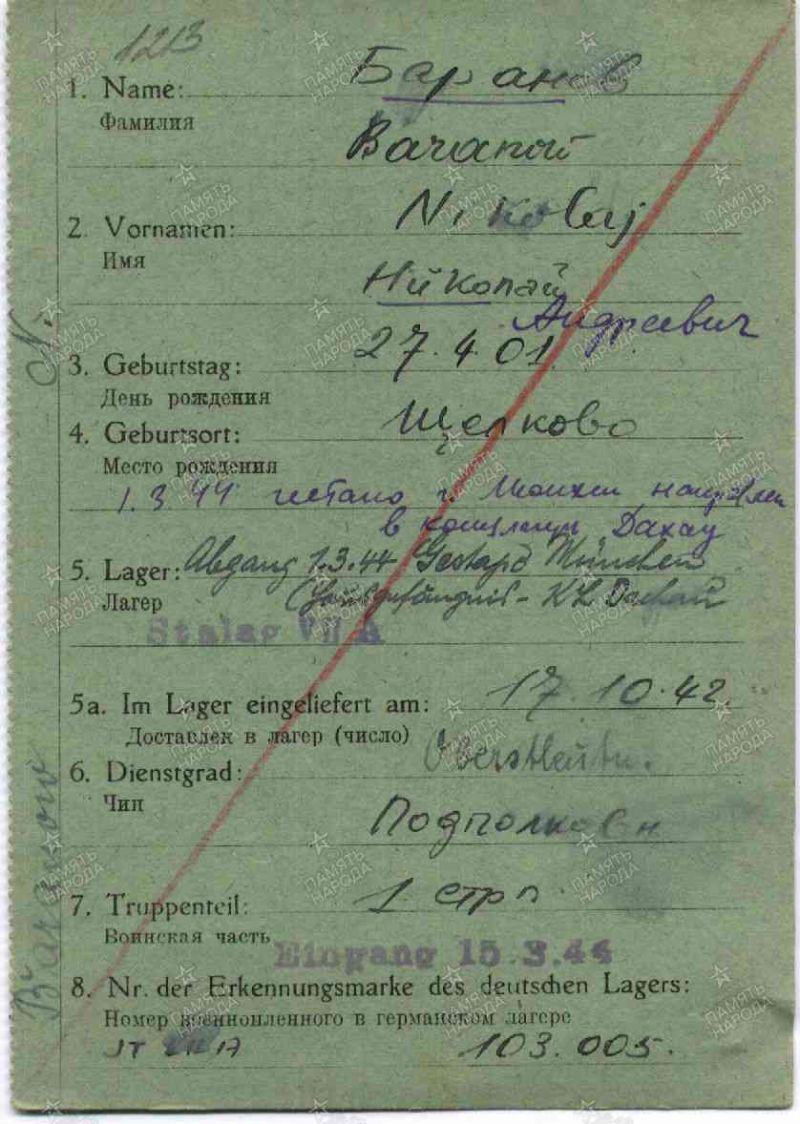 1213
1. Name: Баранов
Фамилия
Nikolaj
2. Vornamen:
Имя
Николай
Андреевич
3. Geburtstag: 27.4.01
День рождения
4. Geburtsort: Щелково
Место рождения
1.3 44 гестапо г. Мюнхен направлен
в концлагерь Дахау
5. Lager: Abgang 1.3.44 Gestapo München
Лагер (Hausgefängnis - KL Dachau
Stalag VII A
5a. Im Lager eingeliefert am: 17.10.42.
Доставлен в лагер (число)
6. Dienstgrad: Oberstleutn.
Чин
Подполковн
7. Truppenteil: 1 стрп.
Воинская часть
Eingang 15.3.44
8. Nr. der Erkennungsmarke des deutschen Lagers:
Номер военнопленного в германском лагере
VII A 103.005.
N.
Baranow
ПАМЯТЬ НАРОДА